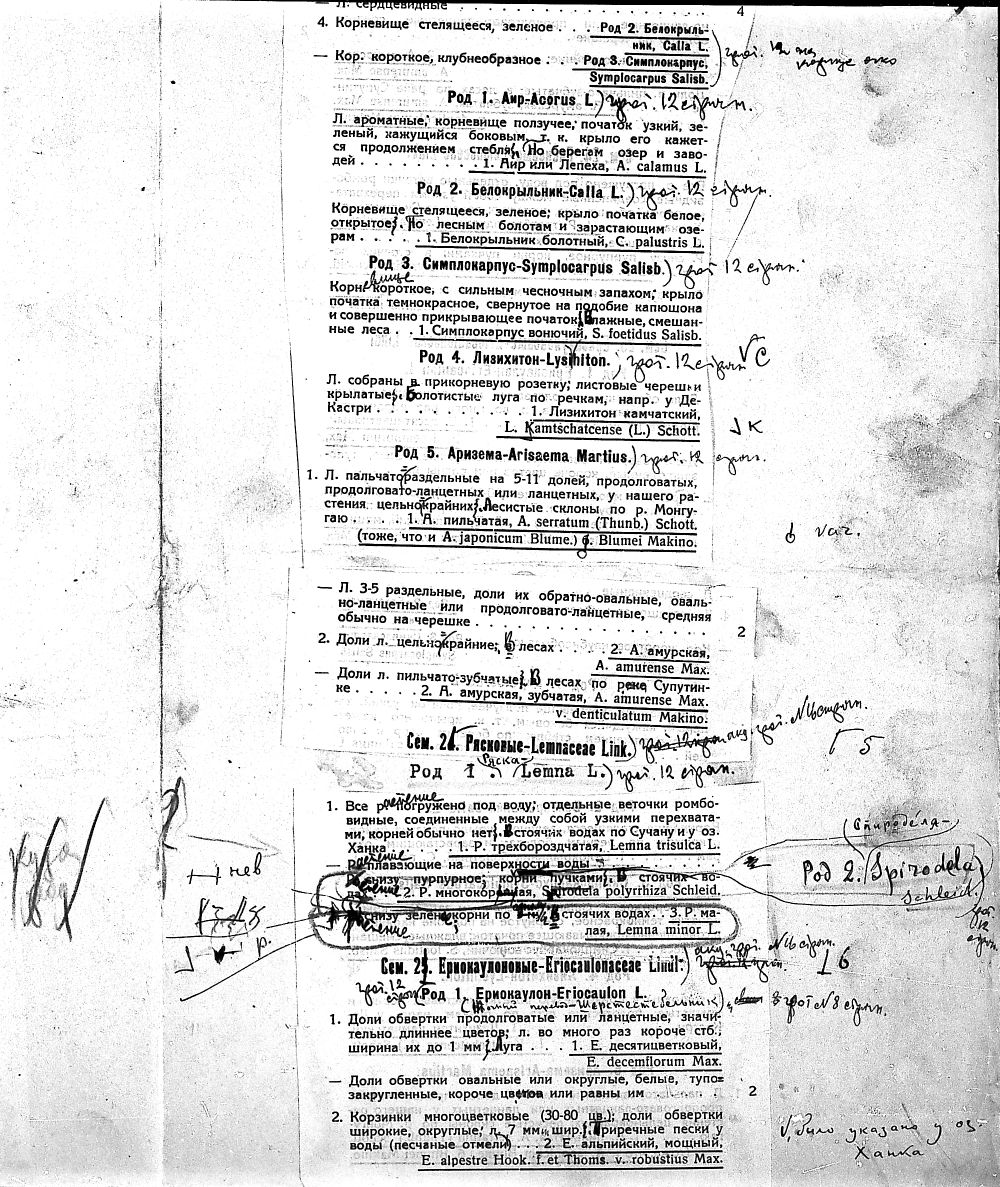 — Л. сердцевидные . . . 4
4. Корневище стелящееся, зеленое . . . Род 2. Белокрыль-
ник, Calla L.
— Кор. короткое, клубнеобразное . Род 3. Симплокарпус,
Symplocarpus Salisb.
Род 1. Аир-Acorus L.) грот. 12 стрчн.
Л. ароматные, корневище ползучее, початок узкий, зе-
леный, кажущийся боковым, т. к. крыло его кажет-
ся продолжением стебля. По берегам озер и заво-
дей . . . 1. Аир или Лепеха, A. calamus L.
Род 2. Белокрыльник-Calla L.) грот. 12 стрчн.
Корневище стелящееся, зеленое; крыло початка белое,
открытое. По лесным болотам и зарастающим озе-
рам . . . 1. Белокрыльник болотный, C. palustris L.
Род 3. Симплокарпус-Symplocarpus Salisb.) грот 12 стрчн.
Корневище короткое, с сильным чесночным запахом; крыло
початка темнокрасное, свернутое на подобие капюшона
и совершенно прикрывающее початок. Влажные, смешан-
ные леса . . 1. Симплокарпус вонючий, S. foetidus Salisb.
Род 4. Лизихитон-Lysihiton.) грот. 12 стрчн √ C
Л. собраны в прикорневую розетку; листовые черешки
крылатые. Болотистые луга по речкам, напр. у Де-
Кастри . . . 1. Лизихитон камчатский,
L. Kamtschatcense (L.) Schott. K
Род 5. Аризема-Arisaema Martius.) грот. 12 стрчн.
1. Л. пальчатораздельные на 5-11 долей, продолговатых,
продолговато-ланцетных или ланцетных, у нашего ра-
стения цельнокрайних. Лесистые склоны по р. Монгу-
гаю . . . 1. А. пильчатая, A. serratum (Thunb.) Schott.
(тоже, что и A. japonicum Blume.) f. Blumei Makino.
var.
— Л. 3-5 раздельные, доли их обратно-овальные, оваль-
но-ланцетные или продолговато-ланцетные, средняя
обычно на черешке . . . 2
2. Доли л. цельнокрайние; В лесах . . 2. А. амурская,
A. amurense Max.
— Доли л. пильчато-зубчатые. В лесах по реке Супутин-
ке . . . 2. А. амурская, зубчатая, A. amurense Max.
v. denticulatum Makino.
Сем. 2. Рясковые-Lemnaceae Link.) грот. №16 стрчн.
5
Род 1. Ряска-Lemna L.) грот. 12 стрчн.
1. Все растение погружено под воду; отдельные веточки ромбо-
видные, соединенные между собой узкими перехвата-
ми, корней обычно нет. В стоячих водах по Сучану и у оз.
Ханка . . . 1. Р. трехбороздчатая, Lemna trisulca L.
— растение плавающие на поверхности воды
снизу пурпурное; корни пучками. В стоячих во-
2. Р. многокоренная, Spirodela polyrrhiza Schleid.
Спиродела-
Род 2. Spirodela
Schleid.
грот 12 стрчн.
нев
снизу зелен. корни по В стоячих водах. . 3. Р. ма-
лая, Lemna minor L.
Сем. 2. Ериокаулоновые-Eriocaulonaceae Lindl.) грот. №16 стрчн.
6
грот. 12 стрчн
Род 1. Ериокаулон-Eriocaulon L. грот №8 стрчн.
1. Доли обвертки продолговатые или ланцетные, значи-
тельно длиннее цветов; л. во много раз короче стб.,
ширина их до 1 мм. Луга . . . 1. Е. десятицветковый,
E. decemflorum Max.
— Доли обвертки овальные или округлые, белые, тупо-
закругленные, короче цветов или равны им . . . 2
2. Корзинки многоцветковые (30-80 цв.); доли обвертки
широкие, округлые; л. 7 мм. шир. Приречные пески у
воды (песчаные отмели) . . . 2. Е. альпийский, мощный,
E. alpestre Hook. f. et Thoms. v. robustius Max.
было указано у оз.
Ханка